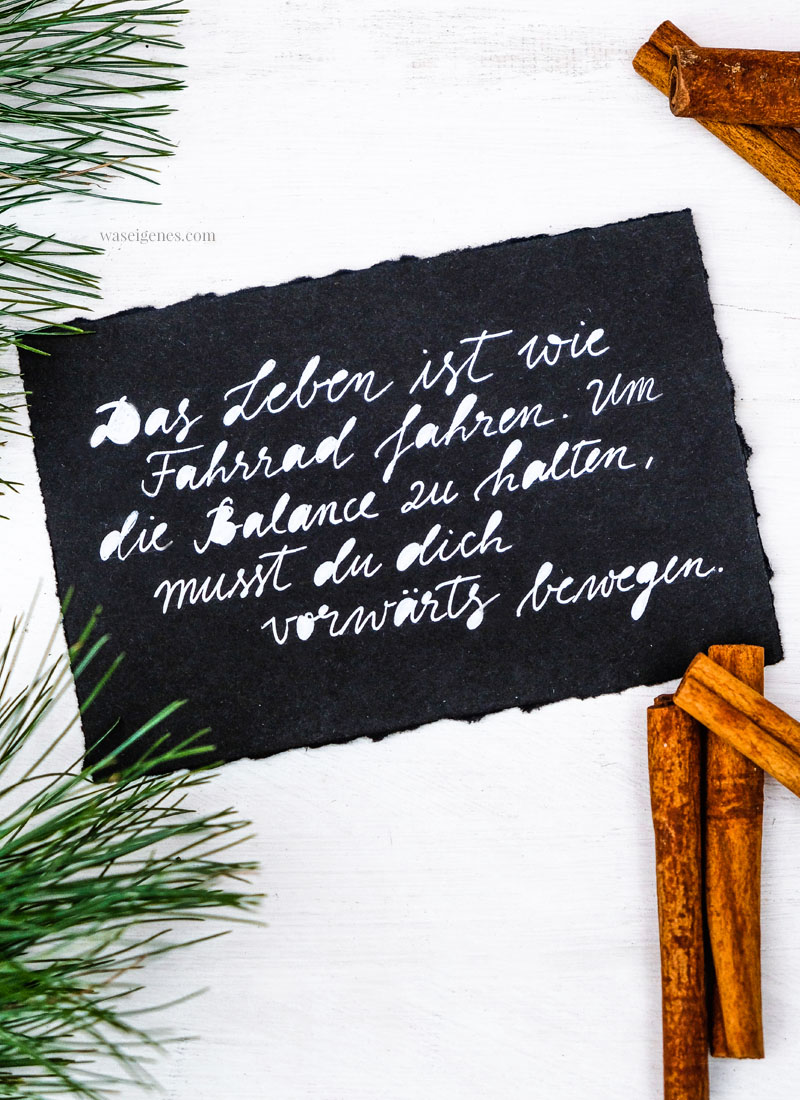 waseigenes.com
Das Leben ist wie
Fahrrad fahren. Um
die Balance zu halten,
musst du dich
vorwärts bewegen.